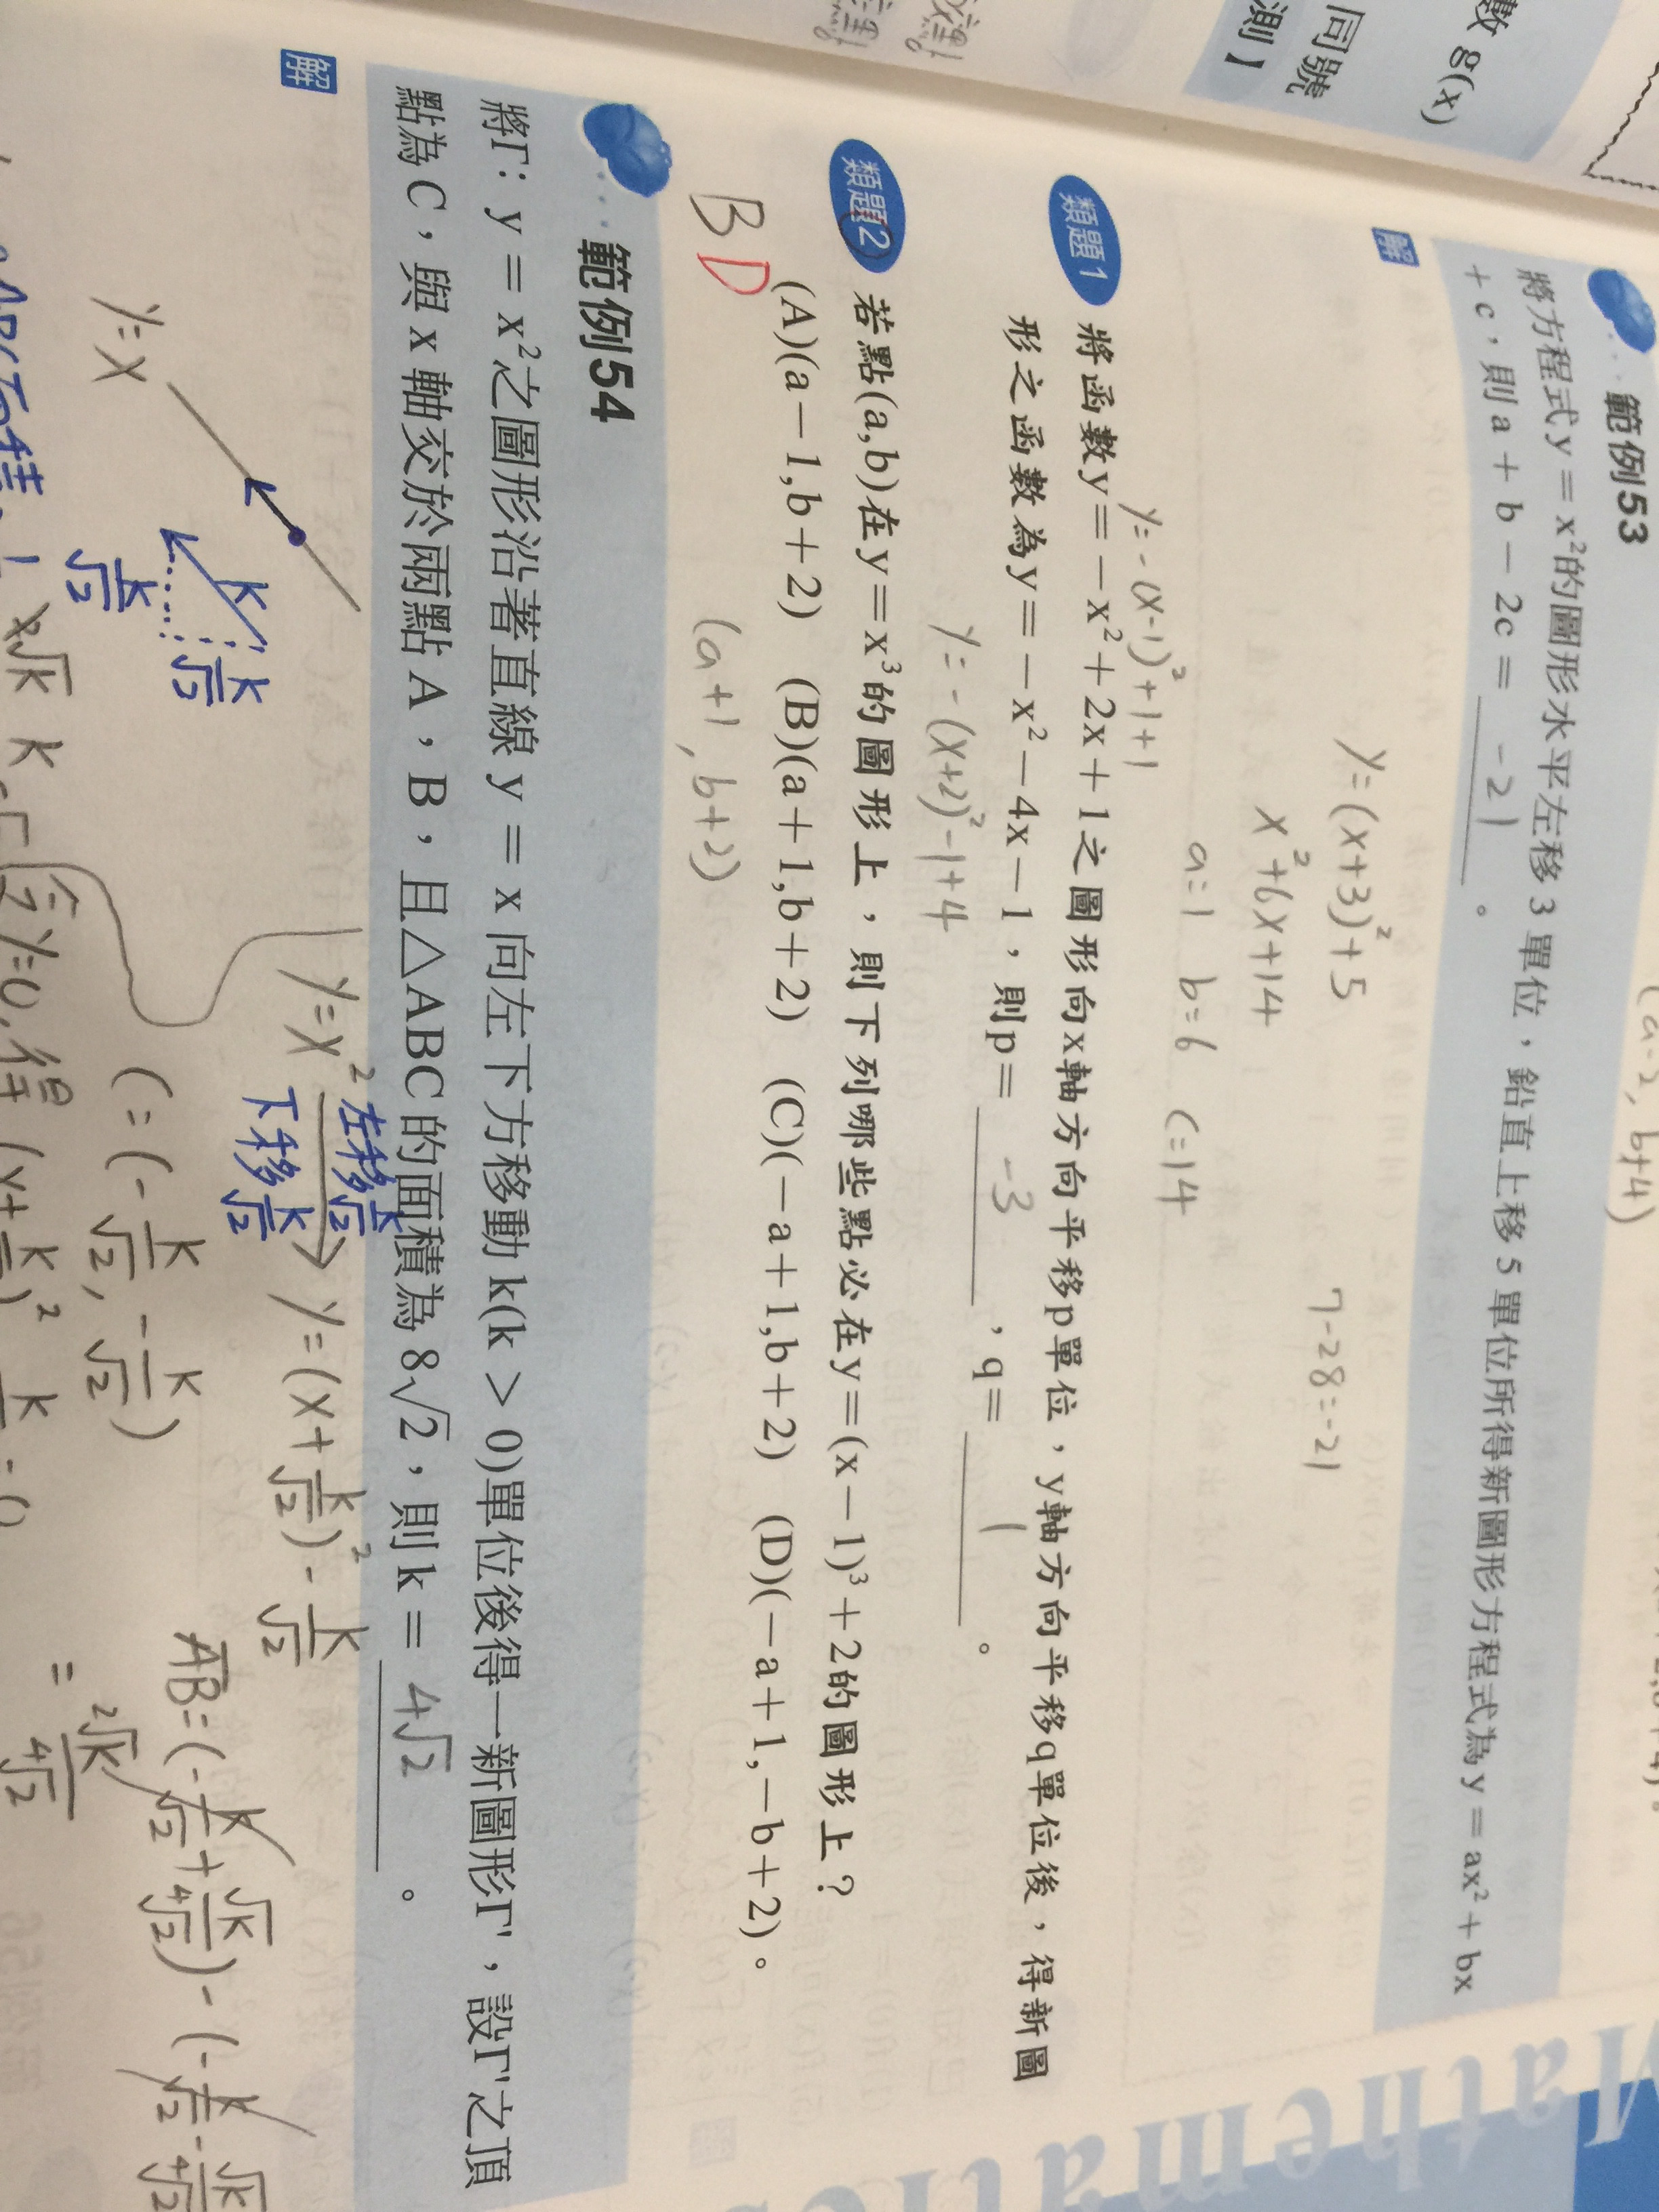 數 g(x)
同號
測】
(a-2, b+4)
範例53
將方程式 y = x²的圖形水平左移 3 單位，鉛直上移 5 單位所得新圖形方程式為 y = ax² + bx
+ c，則 a + b − 2c = -21 。
解
y=(x+3)²+5
x²+6x+14
a=1 b=6 c=14
7-28=-21
y=-(x-1)²+1+1
類題1 將函數y=−x²+2x+1之圖形向x軸方向平移p單位，y軸方向平移q單位後，得新圖
形之函數為y=−x²−4x−1，則p= -3 ，q= 1 。
y=-(x+2)²-1+4
類題2 若點(a,b)在y=x³的圖形上，則下列哪些點必在y=(x−1)³+2的圖形上？
(A)(a−1,b+2) (B)(a+1,b+2) (C)(−a+1,b+2) (D)(−a+1,−b+2)。
BD
(a+1, b+2)
範例54
將Γ：y = x²之圖形沿著直線 y = x 向左下方移動 k(k > 0)單位後得一新圖形Γ'，設Γ'之頂
點為 C，與 x 軸交於兩點 A，B，且△ABC 的面積為 8√2，則 k = 4√2 。
解
y=x
k
k/√2
k/√2
y=x² 左移k/√2 下移k/√2 y=(x+k/√2)²-k/√2
C=(-k/√2, -k/√2)
令y=0,得
AB=(-k/√2+√k/⁴√2)-(-k/√2-√k/⁴√2)
=2√k/⁴√2
Mathematics